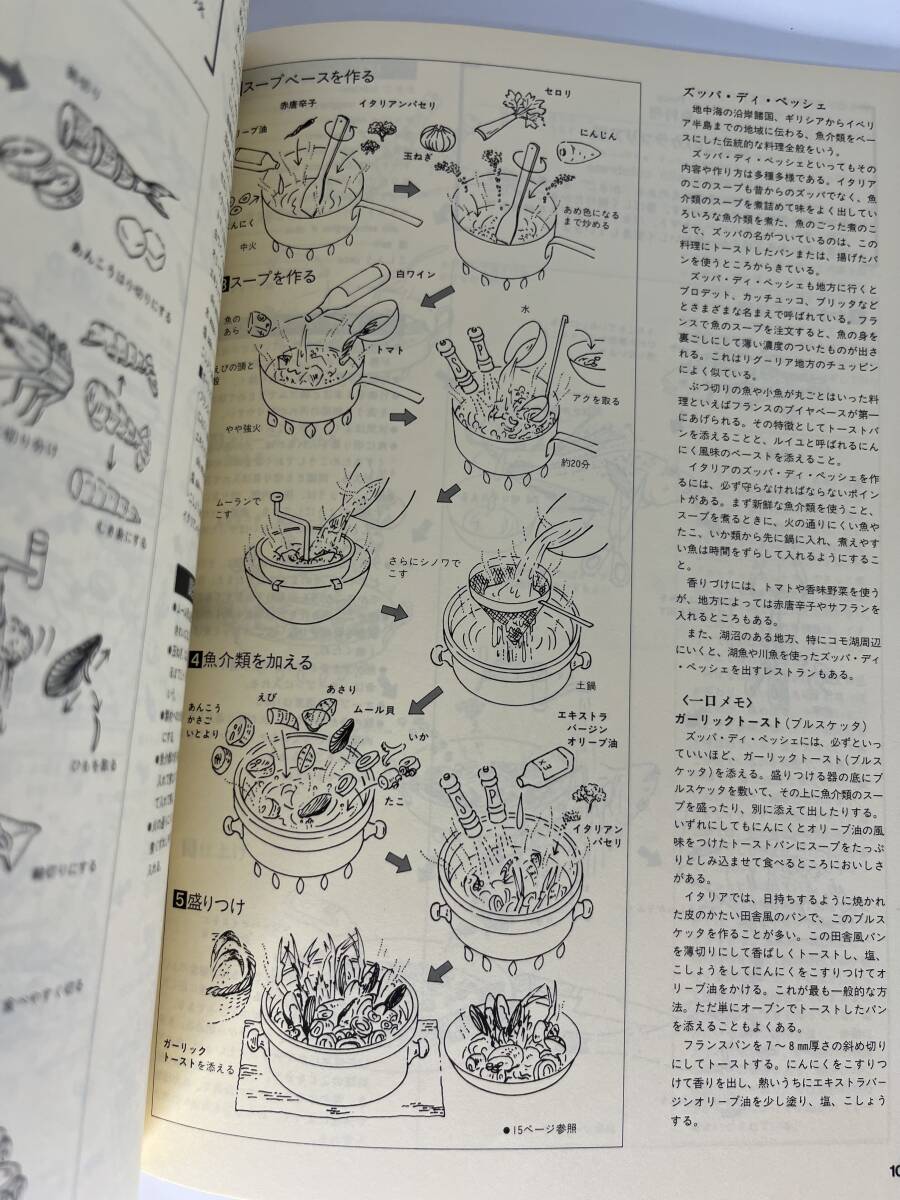 スープベースを作る
赤唐辛子
イタリアンパセリ
ープ油
玉ねぎ
んにく
中火
セロリ
にんじん
あめ色になる
まで炒める
スープを作る
白ワイン
魚の
あら
トマト
えびの頭と
やや強火
水
アクを取る
約20分
ムーランで
こす
さらにシノワで
こす
土鍋
4 魚介類を加える
あんこう
かさご
いとより
えび
あさり
ムール貝
いか
たこ
エキストラ
バージン
オリーブ油
EX
イタリアン
パセリ
5 盛りつけ
ガーリック
トーストを添える
●15ページ参照
ズッパ・ディ・ペッシェ
地中海の沿岸諸国、ギリシアからイベリ
ア半島までの地域に伝わる、魚介類をベー
スにした伝統的な料理全般をいう。
ズッパ・ディ・ペッシェといってもその
内容や作り方は多種多様である。イタリア
のこのスープも昔からのズッパでなく、魚
介類のスープを煮詰めて味をよく出してい
ろいろな魚介類を煮た、魚のごった煮のこ
とで、ズッパの名がついているのは、この
料理にトーストしたパンまたは、揚げたパ
ンを使うところからきている。
ズッパ・ディ・ペッシェも地方に行くと
ブロデット、カッチュッコ、ブリッタなど
とさまざまな名まえで呼ばれている。フラ
ンスで魚のスープを注文すると、魚の身を
裏ごしにして薄い濃度のついたものが出さ
れる。これはリグーリア地方のチュッピン
によく似ている。
ぶつ切りの魚や小魚が丸ごとはいった料
理といえばフランスのブイヤベースが第一
にあげられる。その特徴としてトーストパ
ンを添えることと、ルイユと呼ばれるにん
にく風味のペーストを添えること。
イタリアのズッパ・ディ・ペッシェを作
るには、必ず守らなければならないポイン
トがある。まず新鮮な魚介類を使うこと、
スープを煮るときに、火の通りにくい魚や
たこ、いか類から先に鍋に入れ、煮えやす
い魚は時間をずらして入れるようにするこ
と。
香りづけには、トマトや香味野菜を使う
が、地方によっては赤唐辛子やサフランを
入れるところもある。
また、湖沼のある地方、特にコモ湖周辺
にいくと、湖魚や川魚を使ったズッパ・ディ
・ペッシェを出すレストランもある。
〈一口メモ〉
ガーリックトースト(ブルスケッタ)
ズッパ・ディ・ペッシェには、必ずといっ
ていいほど、ガーリックトースト(ブルス
ケッタ)を添える。盛りつける器の底にブ
ルスケッタを敷いて、その上に魚介類のスー
プを盛ったり、別に添えて出したりする。
いずれにしてもにんにくとオリーブ油の風
味をつけたトーストパンにスープをたっぷ
りとしみ込ませて食べるところにおいしさ
がある。
イタリアでは、日持ちするように焼かれ
た皮のかたい田舎風のパンで、このブルス
ケッタを作ることが多い。この田舎風パン
を薄切りにして香ばしくトーストし、塩、
こしょうをしてにんにくをこすりつけてオ
リーブ油をかける。これが最も一般的な方
法。ただ単にオーブンでトーストしたパン
を添えることもよくある。
フランスパンを7〜8㎜厚さの斜め切り
にしてトーストする。にんにくをこすりつ
けて香りを出し、熱いうちにエキストラバー
ジンオリーブ油を少し塗り、塩、こしょう
する。
10
あんこうは小切りにする
切り分け
むき身にする
ひもを取る
食べやすく切る